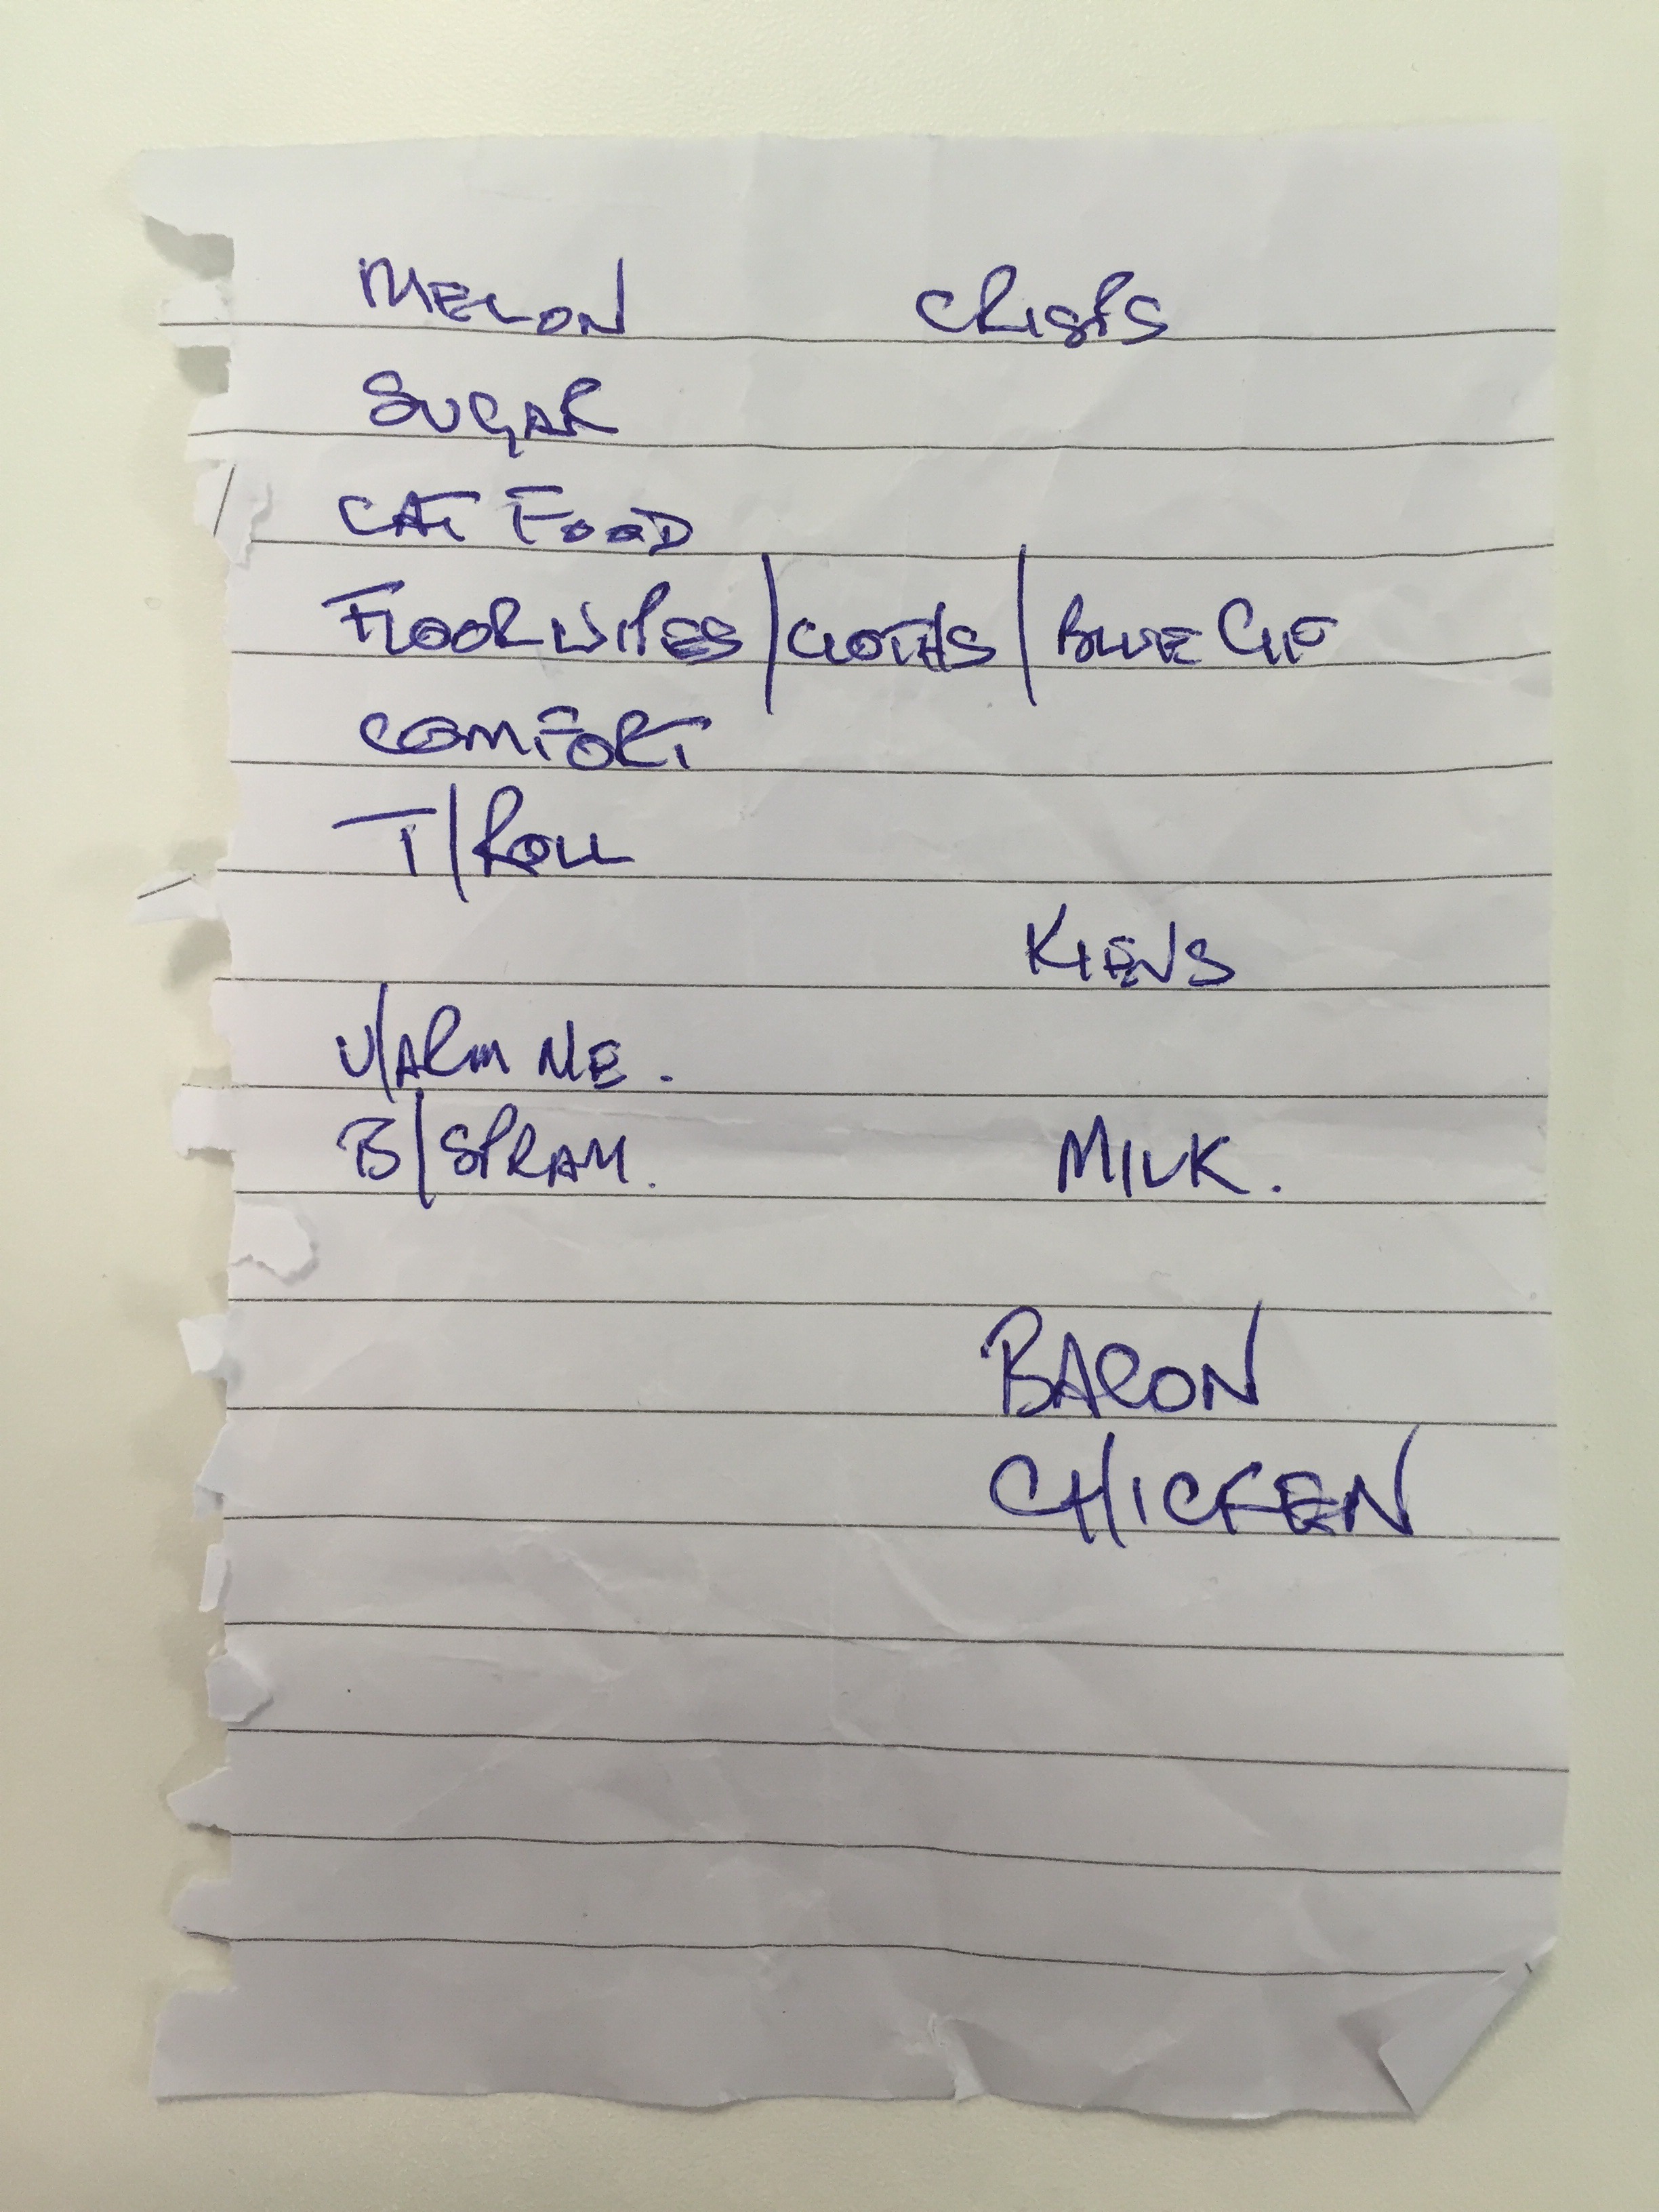 MELON CRISPS
SUGAR
CAT FOOD
FLOOR WIPES / CLOTHS / BLUE CIF
COMFORT
T/ROLL
KIEVS
U/ARM ME.
B/SPRAY.
MILK.
BACON
CHICKEN